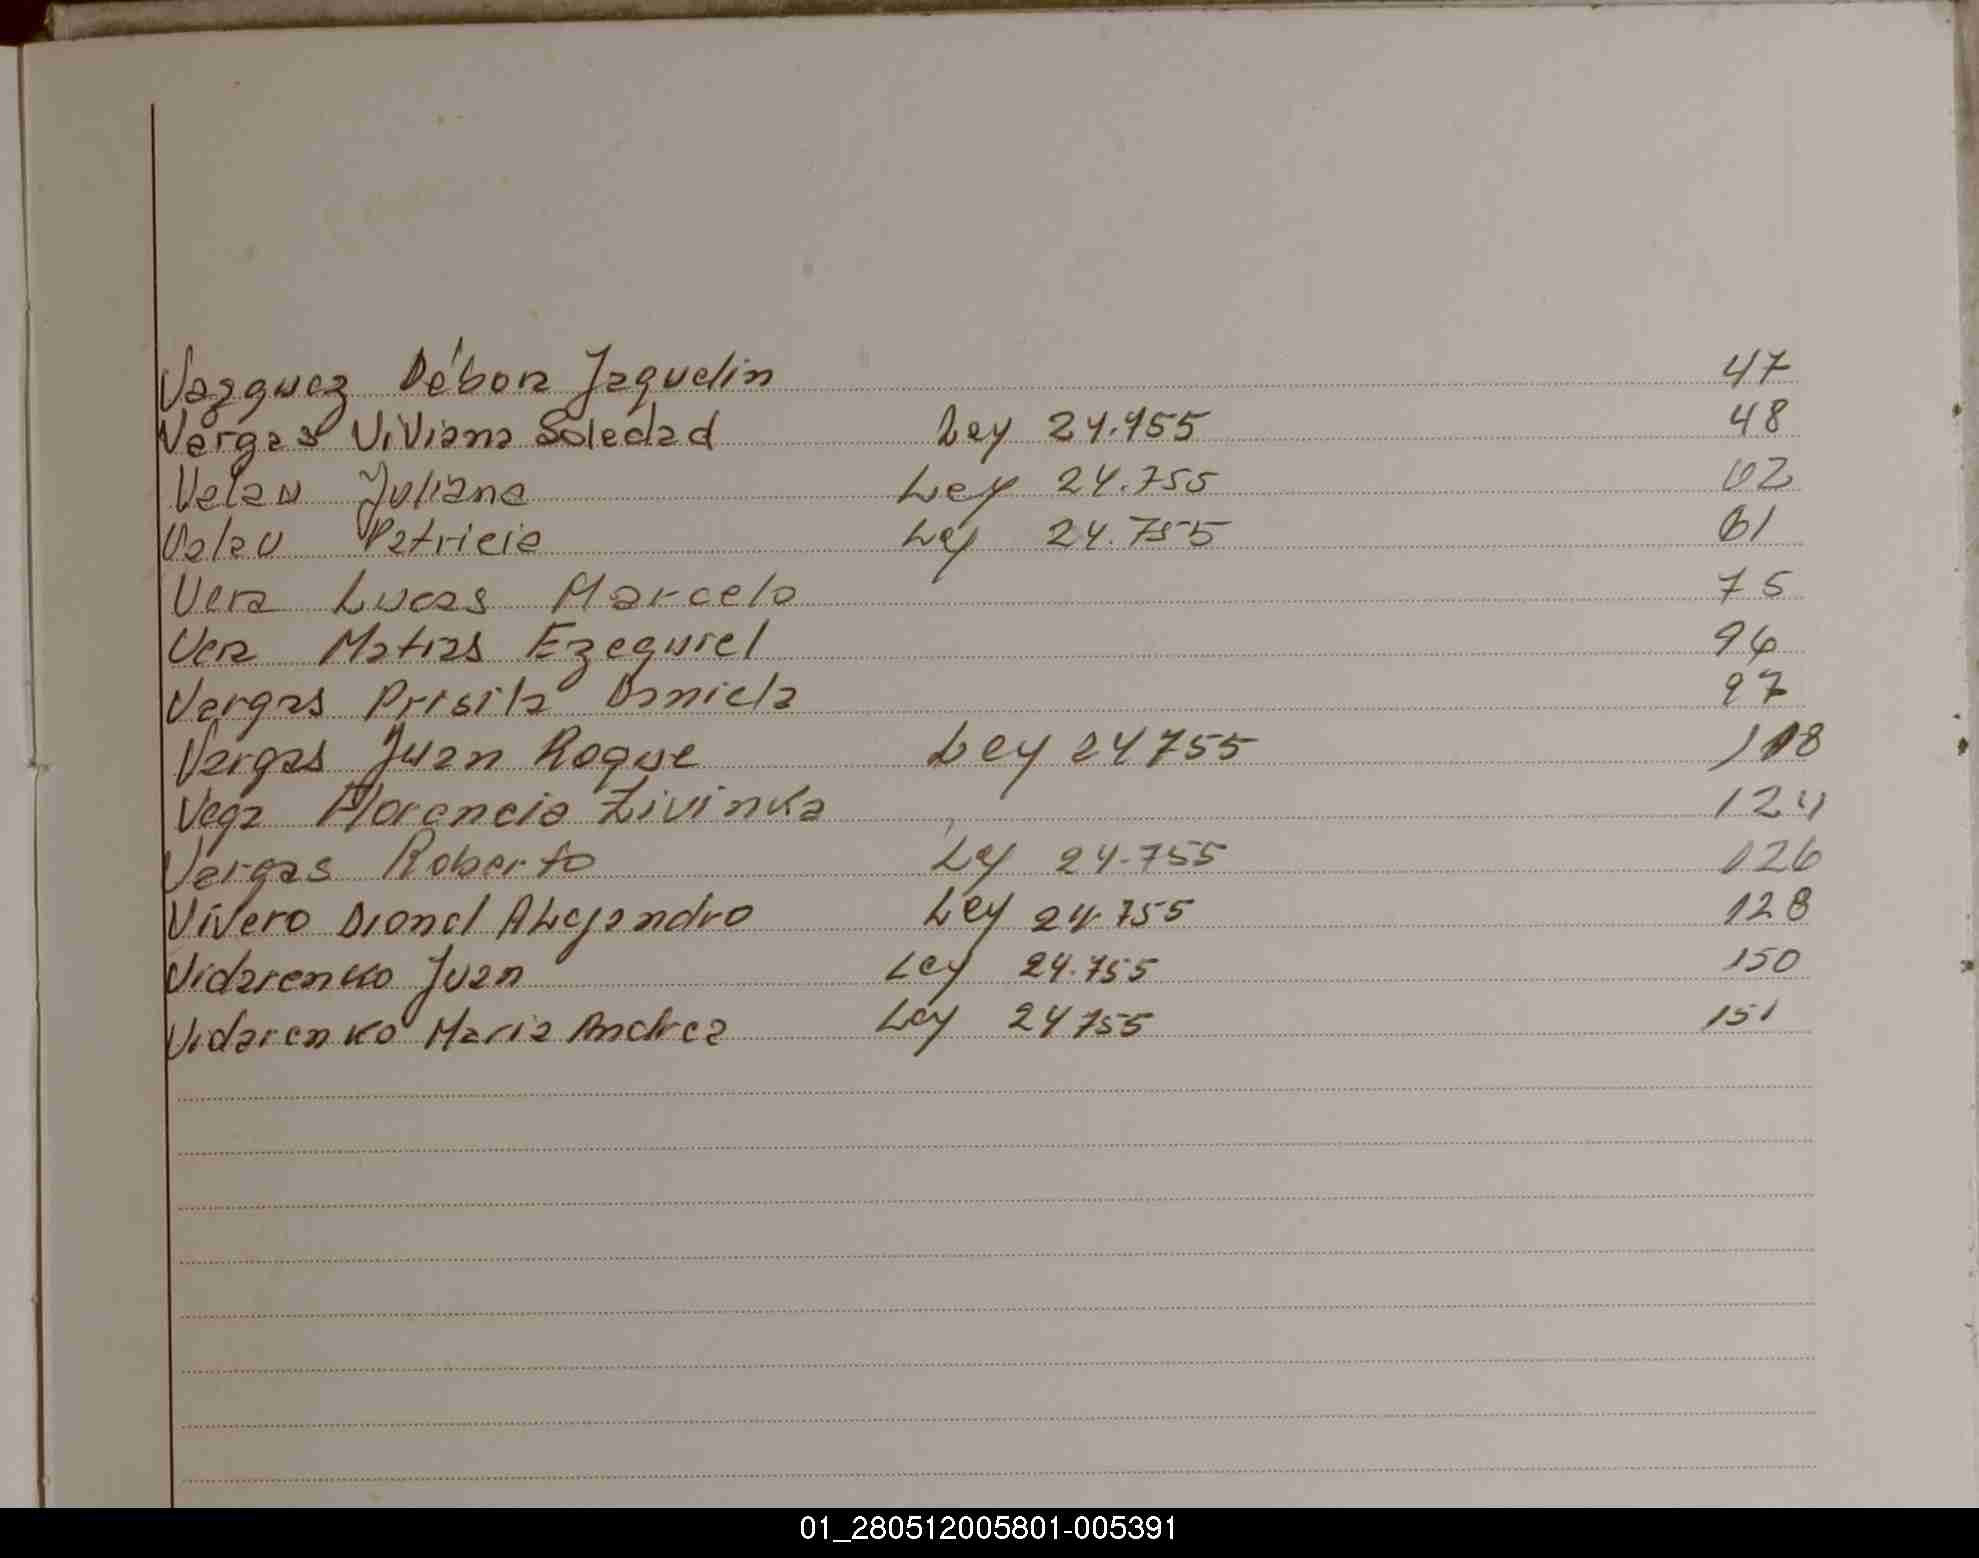 Vazquez Débora Jaquelin 47
Vargas Viviana Soledad Ley 24.755 48
Velau Juliana Ley 24.755 62
Valau Patricia Ley 24.755 61
Vera Lucas Marcelo 75
Vera Matias Ezequiel 96
Vargas Prisila Daniela 97
Vargas Juan Roque Ley 24755 118
Vega Florencia Zivinka 124
Vargas Roberto Ley 24.755 126
Vivero Dionel Alejandro Ley 24.755 128
Vidarenko Juan Ley 24.755 150
Vidarenko Maria Andrea Ley 24755 151
01_280512005801-005391